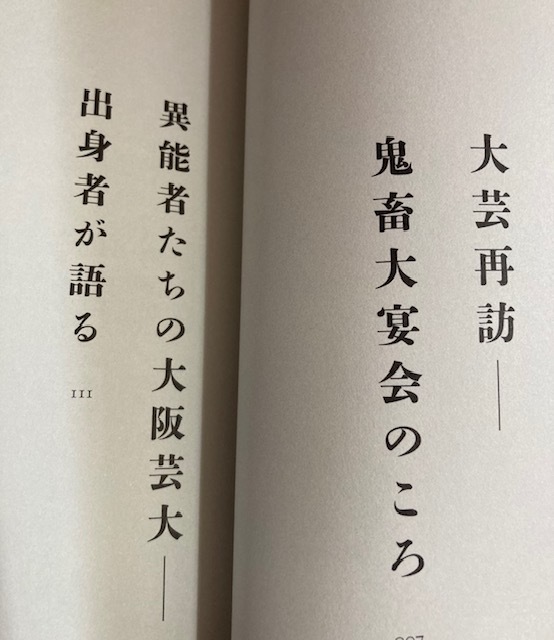 大芸再訪――
鬼畜大宴会のころ
異能者たちの大阪芸大――
出身者が語る
111